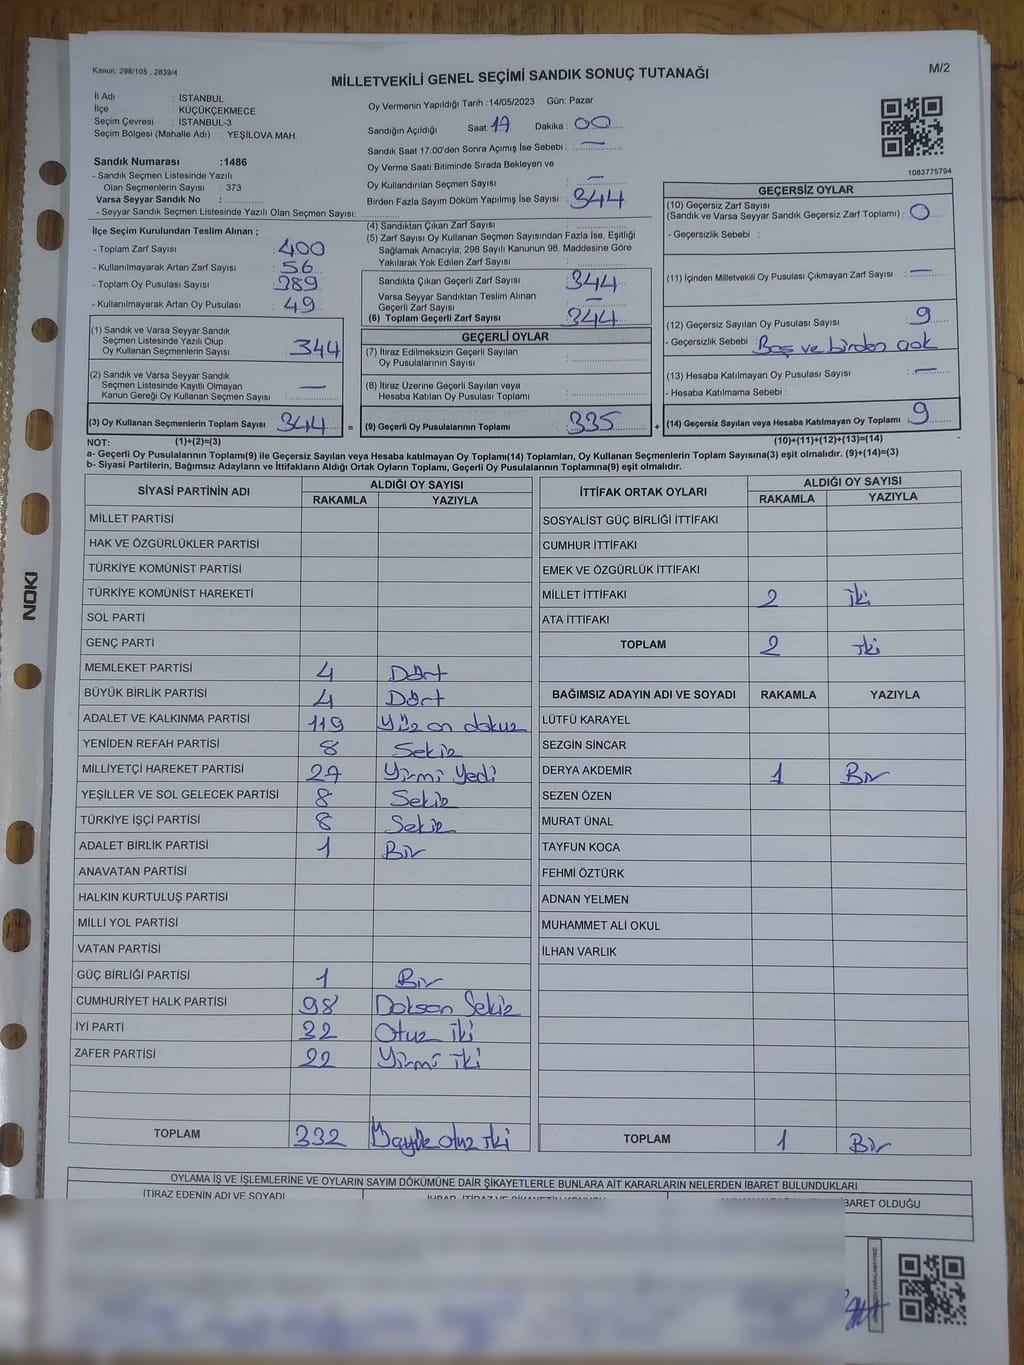 Kanun: 298/105 , 2839/4
MİLLETVEKİLİ GENEL SEÇİMİ SANDIK SONUÇ TUTANAĞI
M/2
İl Adı : İSTANBUL
İlçe : KÜÇÜKÇEKMECE
Seçim Çevresi : İSTANBUL-3
Seçim Bölgesi (Mahalle Adı) : YEŞİLOVA MAH.
Sandık Numarası :1486
- Sandık Seçmen Listesinde Yazılı
Olan Seçmenlerin Sayısı : 373
Varsa Seyyar Sandık No :
- Seyyar Sandık Seçmen Listesinde Yazılı Olan Seçmen Sayısı:
Oy Vermenin Yapıldığı Tarih :14/05/2023 Gün: Pazar
Sandığın Açıldığı Saat: 17 Dakika : 00
Sandık Saat 17:00'den Sonra Açımış İse Sebebi : —
Oy Verme Saati Bitiminde Sırada Bekleyen ve
Oy Kullandırılan Seçmen Sayısı : —
Birden Fazla Sayım Döküm Yapılmış İse Sayısı : 344
1083775794
İlçe Seçim Kurulundan Teslim Alınan ;
- Toplam Zarf Sayısı : 400
- Kullanılmayarak Artan Zarf Sayısı : 56
- Toplam Oy Pusulası Sayısı : 389
- Kullanılmayarak Artan Oy Pusulası : 49
(1) Sandık ve Varsa Seyyar Sandık
Seçmen Listesinde Yazılı Olup
Oy Kullanan Seçmenlerin Sayısı : 344
(2) Sandık ve Varsa Seyyar Sandık
Seçmen Listesinde Kayıtlı Olmayan
Kanun Gereği Oy Kullanan Seçmen Sayısı : —
(3) Oy Kullanan Seçmenlerin Toplam Sayısı : 344 =
(4) Sandıktan Çıkan Zarf Sayısı :
(5) Zarf Sayısı Oy Kullanan Seçmen Sayısından Fazla İse, Eşitliği
Sağlamak Amacıyla; 298 Sayılı Kanunun 98. Maddesine Göre
Yakılarak Yok Edilen Zarf Sayısı :
Sandıkta Çıkan Geçerli Zarf Sayısı : 344
Varsa Seyyar Sandıktan Teslim Alınan
Geçerli Zarf Sayısı : —
(6) Toplam Geçerli Zarf Sayısı : 344
GEÇERLİ OYLAR
(7) İtiraz Edilmeksizin Geçerli Sayılan
Oy Pusulalarının Sayısı :
(8) İtiraz Üzerine Geçerli Sayılan veya
Hesaba Katılan Oy Pusulası Toplamı :
(9) Geçerli Oy Pusulalarının Toplamı : 335 +
GEÇERSİZ OYLAR
(10) Geçersiz Zarf Sayısı
(Sandık ve Varsa Seyyar Sandık Geçersiz Zarf Toplamı) : 0
- Geçersizlik Sebebi :
(11) İçinden Milletvekili Oy Pusulası Çıkmayan Zarf Sayısı : —
(12) Geçersiz Sayılan Oy Pusulası Sayısı : 9
- Geçersizlik Sebebi Boş ve birden çok
(13) Hesaba Katılmayan Oy Pusulası Sayısı : —
- Hesaba Katılmama Sebebi :
(14) Geçersiz Sayılan veya Hesaba Katılmayan Oy Toplamı : 9
NOT: (1)+(2)=(3) (10)+(11)+(12)+(13)=(14)
a- Geçerli Oy Pusulalarının Toplamı(9) ile Geçersiz Sayılan veya Hesaba katılmayan Oy Toplamı(14) Toplamları, Oy Kullanan Seçmenlerin Toplam Sayısına(3) eşit olmalıdır. (9)+(14)=(3)
b- Siyasi Partilerin, Bağımsız Adayların ve İttifakların Aldığı Ortak Oyların Toplamı, Geçerli Oy Pusulalarının Toplamına(9) eşit olmalıdır.
SİYASİ PARTİNİN ADI ALDIĞI OY SAYISI
RAKAMLA YAZIYLA
MİLLET PARTİSİ
HAK VE ÖZGÜRLÜKLER PARTİSİ
TÜRKİYE KOMÜNİST PARTİSİ
TÜRKİYE KOMÜNİST HAREKETİ
SOL PARTİ
GENÇ PARTİ
MEMLEKET PARTİSİ 4 Dört
BÜYÜK BİRLİK PARTİSİ 4 Dört
ADALET VE KALKINMA PARTİSİ 119 Yüz on dokuz
YENİDEN REFAH PARTİSİ 8 Sekiz
MİLLİYETÇİ HAREKET PARTİSİ 27 Yirmi Yedi
YEŞİLLER VE SOL GELECEK PARTİSİ 8 Sekiz
TÜRKİYE İŞÇİ PARTİSİ 8 Sekiz
ADALET BİRLİK PARTİSİ 1 Bir
ANAVATAN PARTİSİ
HALKIN KURTULUŞ PARTİSİ
MİLLİ YOL PARTİSİ
VATAN PARTİSİ
GÜÇ BİRLİĞİ PARTİSİ 1 Bir
CUMHURİYET HALK PARTİSİ 98 Doksan Sekiz
İYİ PARTİ 32 Otuz iki
ZAFER PARTİSİ 22 Yirmi iki
TOPLAM 332 otuz iki
İTTİFAK ORTAK OYLARI ALDIĞI OY SAYISI
RAKAMLA YAZIYLA
SOSYALİST GÜÇ BİRLİĞİ İTTİFAKI
CUMHUR İTTİFAKI
EMEK VE ÖZGÜRLÜK İTTİFAKI
MİLLET İTTİFAKI 2 iki
ATA İTTİFAKI
TOPLAM 2 iki
BAĞIMSIZ ADAYIN ADI VE SOYADI RAKAMLA YAZIYLA
LÜTFÜ KARAYEL
SEZGİN SİNCAR
DERYA AKDEMİR 1 Bir
SEZEN ÖZEN
MURAT ÜNAL
TAYFUN KOCA
FEHMİ ÖZTÜRK
ADNAN YELMEN
MUHAMMET ALİ OKUL
İLHAN VARLIK
TOPLAM 1 Bir
OYLAMA İŞ VE İŞLEMLERİNE VE OYLARIN SAYIM DÖKÜMÜNE DAİR ŞİKAYETLERLE BUNLARA AİT KARARLARIN NELERDEN İBARET BULUNDUKLARI
İTİRAZ EDENİN ADI VE SOYADI
İBARET OLDUĞU
NOKI